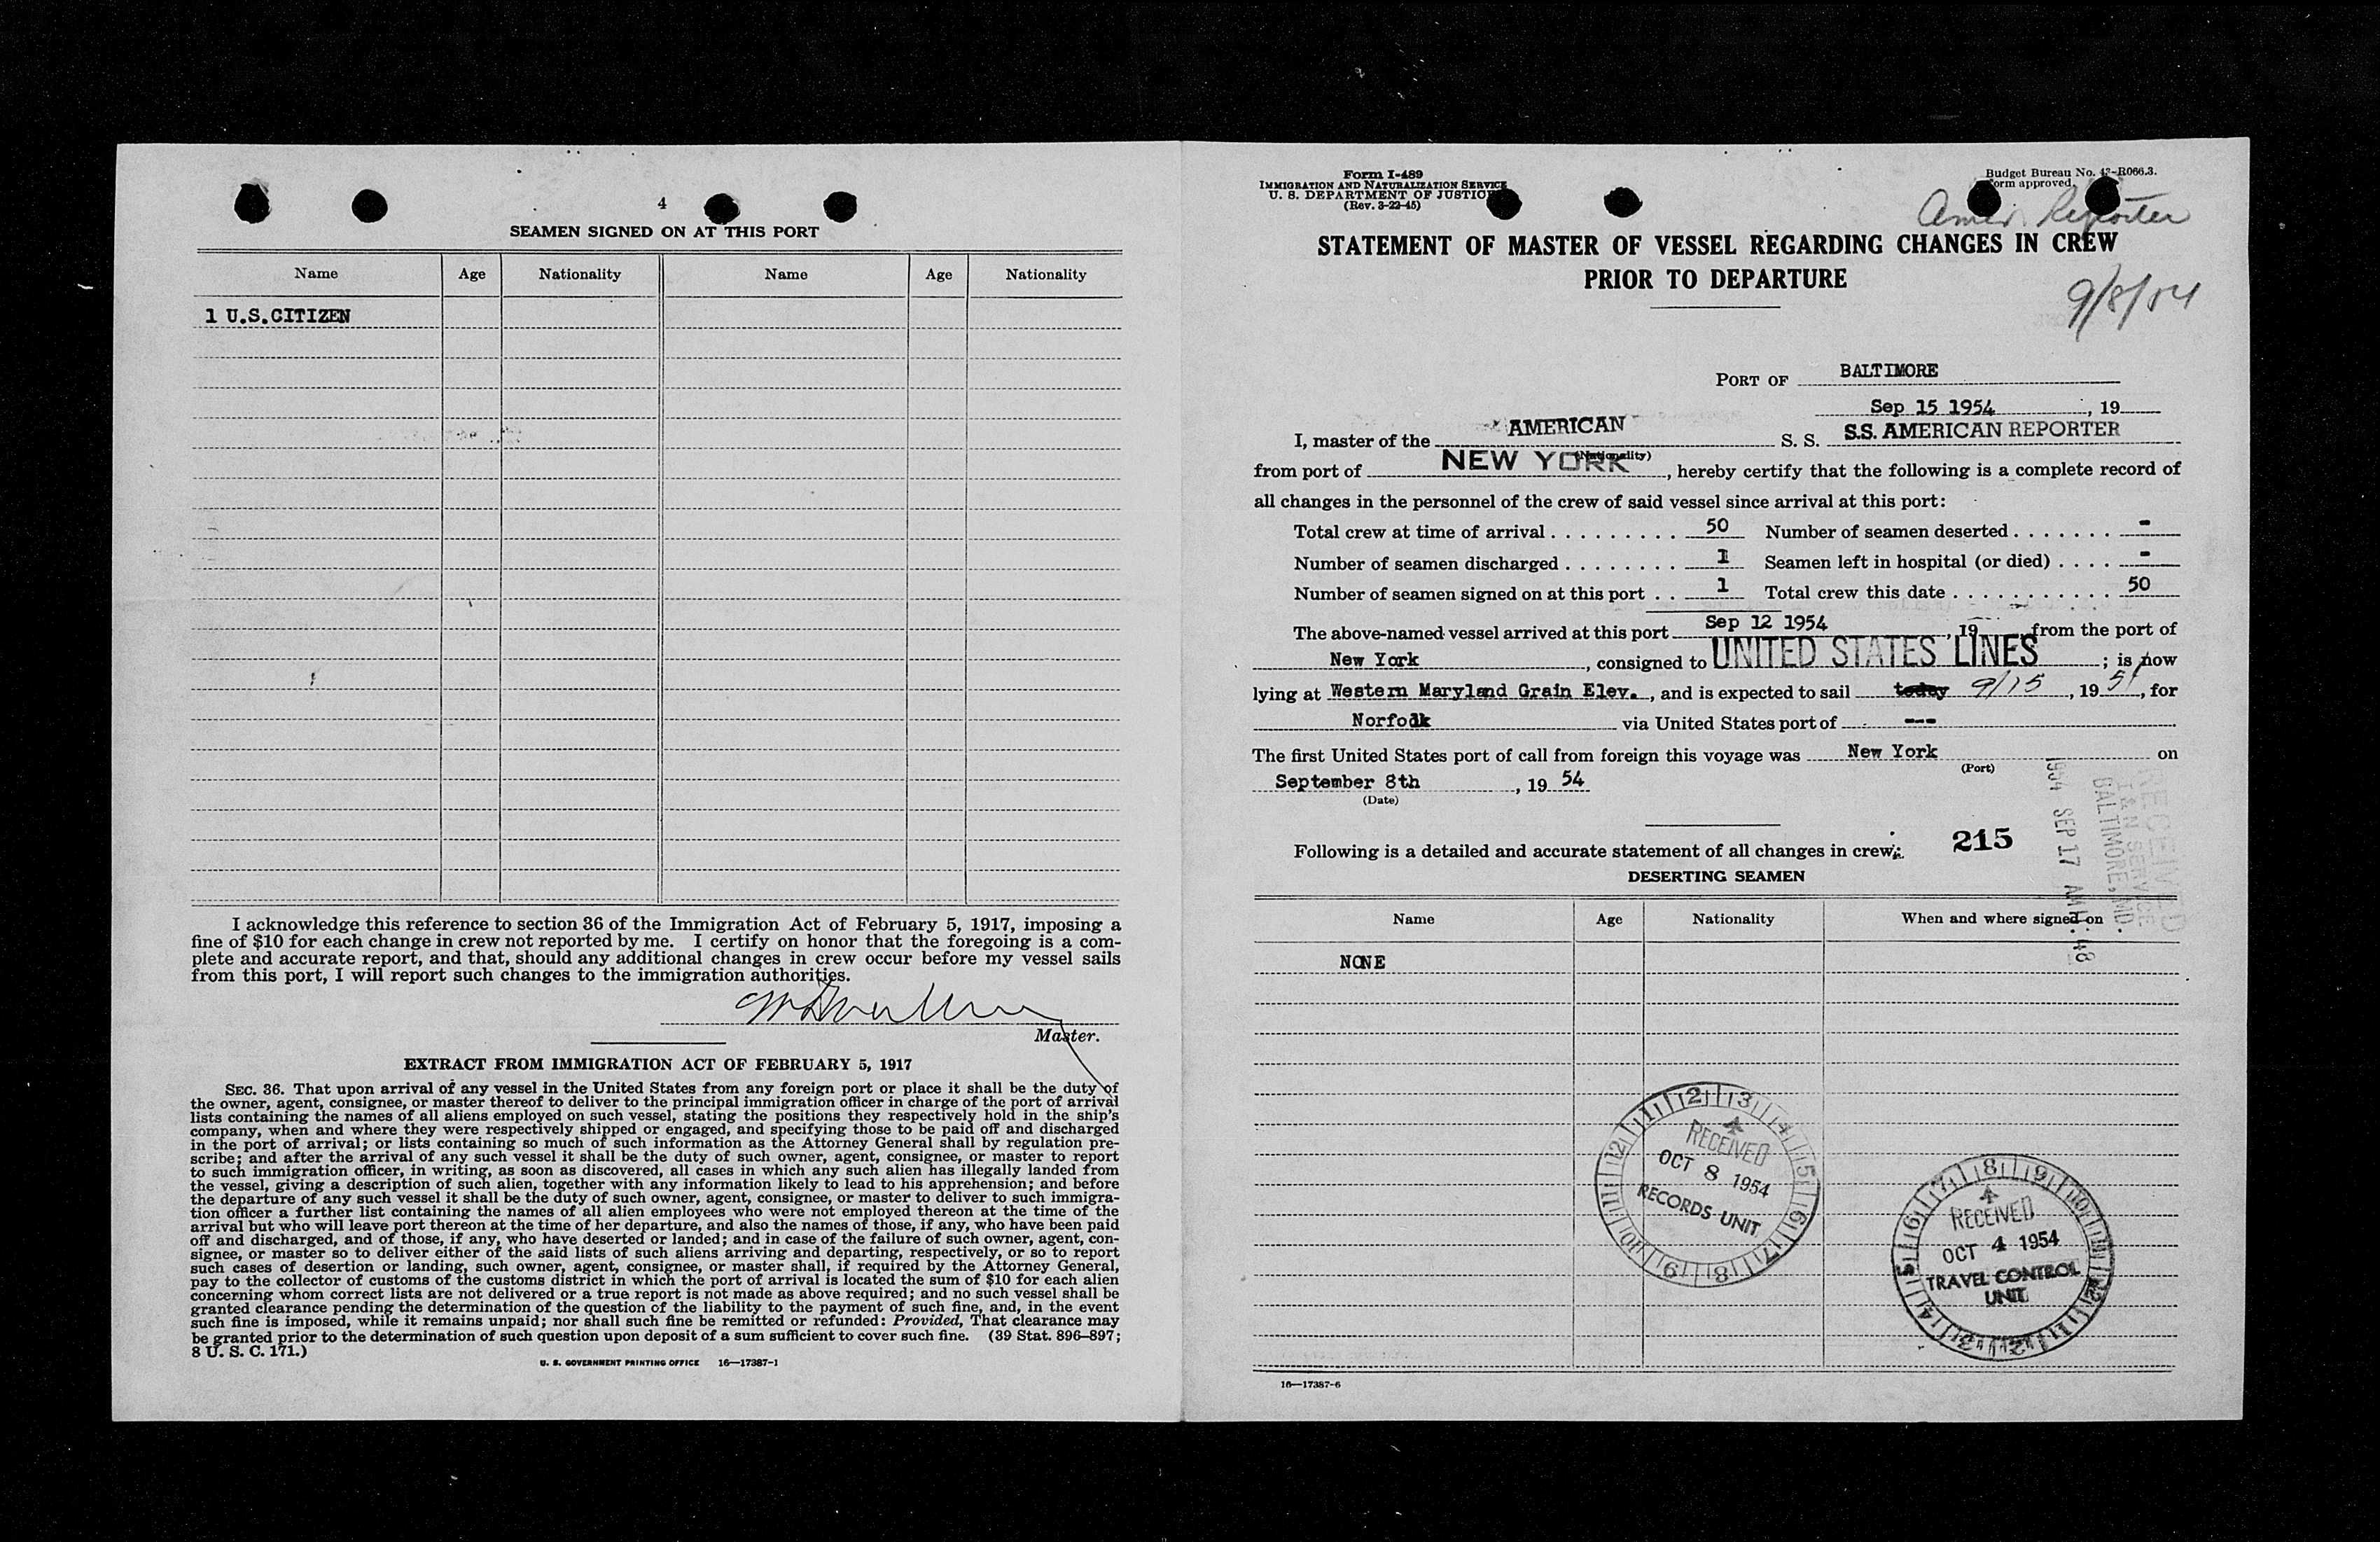 4
SEAMEN SIGNED ON AT THIS PORT
Name Age Nationality Name Age Nationality
1 U.S.CITIZEN
I acknowledge this reference to section 36 of the Immigration Act of February 5, 1917, imposing a
fine of $10 for each change in crew not reported by me. I certify on honor that the foregoing is a com-
plete and accurate report, and that, should any additional changes in crew occur before my vessel sails
from this port, I will report such changes to the immigration authorities.
Master.
EXTRACT FROM IMMIGRATION ACT OF FEBRUARY 5, 1917
SEC. 36. That upon arrival of any vessel in the United States from any foreign port or place it shall be the duty of
the owner, agent, consignee, or master thereof to deliver to the principal immigration officer in charge of the port of arrival
lists containing the names of all aliens employed on such vessel, stating the positions they respectively hold in the ship's
company, when and where they were respectively shipped or engaged, and specifying those to be paid off and discharged
in the port of arrival; or lists containing so much of such information as the Attorney General shall by regulation pre-
scribe; and after the arrival of any such vessel it shall be the duty of such owner, agent, consignee, or master to report
to such immigration officer, in writing, as soon as discovered, all cases in which any such alien has illegally landed from
the vessel, giving a description of such alien, together with any information likely to lead to his apprehension; and before
the departure of any such vessel it shall be the duty of such owner, agent, consignee, or master to deliver to such immigra-
tion officer a further list containing the names of all alien employees who were not employed thereon at the time of the
arrival but who will leave port thereon at the time of her departure, and also the names of those, if any, who have been paid
off and discharged, and of those, if any, who have deserted or landed; and in case of the failure of such owner, agent, con-
signee, or master so to deliver either of the said lists of such aliens arriving and departing, respectively, or so to report
such cases of desertion or landing, such owner, agent, consignee, or master shall, if required by the Attorney General,
pay to the collector of customs of the customs district in which the port of arrival is located the sum of $10 for each alien
concerning whom correct lists are not delivered or a true report is not made as above required; and no such vessel shall be
granted clearance pending the determination of the question of the liability to the payment of such fine, and, in the event
such fine is imposed, while it remains unpaid; nor shall such fine be remitted or refunded: Provided, That clearance may
be granted prior to the determination of such question upon deposit of a sum sufficient to cover such fine. (39 Stat. 896–897;
8 U. S. C. 171.)
U. S. GOVERNMENT PRINTING OFFICE 16—17387-1
Form I-489
IMMIGRATION AND NATURALIZATION SERVICE
U. S. DEPARTMENT OF JUSTICE
(Rev. 3-22-45)
Budget Bureau No. 43-R066.3.
Form approved.
Amer. Reporter
STATEMENT OF MASTER OF VESSEL REGARDING CHANGES IN CREW
PRIOR TO DEPARTURE
9/8/54
PORT OF BALTIMORE
Sep 15 1954, 19
I, master of the AMERICAN S. S. S.S. AMERICAN REPORTER
(Nationality)
from port of NEW YORK, hereby certify that the following is a complete record of
all changes in the personnel of the crew of said vessel since arrival at this port:
Total crew at time of arrival . . . . . . . . . 50 Number of seamen deserted . . . . . . . -
Number of seamen discharged . . . . . . . . 1 Seamen left in hospital (or died) . . . . -
Number of seamen signed on at this port . . 1 Total crew this date . . . . . . . . . . . . 50
The above-named vessel arrived at this port Sep 12 1954, 19 from the port of
New York, consigned to UNITED STATES LINES; is now
lying at Western Maryland Grain Elev., and is expected to sail today 9/15, 1954, for
Norfolk via United States port of ---
The first United States port of call from foreign this voyage was New York on
(Port)
September 8th, 19 54
(Date)
RECEIVED
I & N SERVICE
BALTIMORE, MD.
1954 SEP 17 AM
:48
Following is a detailed and accurate statement of all changes in crew: 215
DESERTING SEAMEN
Name Age Nationality When and where signed on
NONE
RECEIVED
OCT 8 1954
RECORDS UNIT
RECEIVED
OCT 4 1954
TRAVEL CONTROL
UNIT
16—17387-6